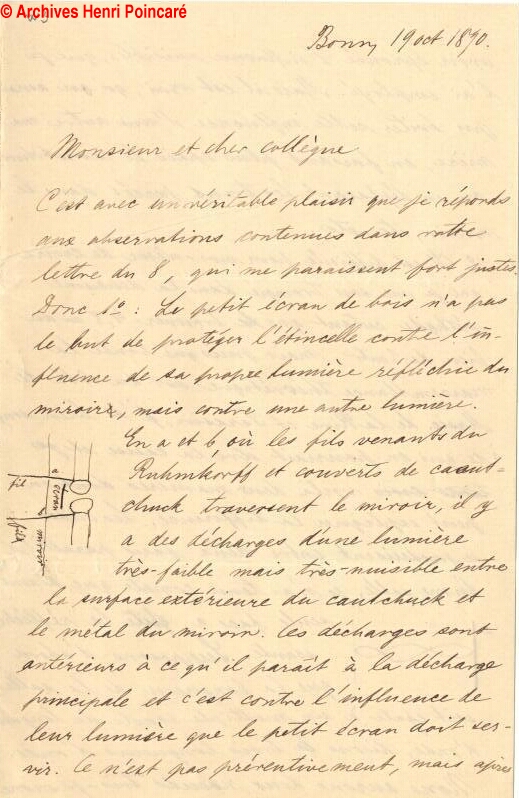 © Archives Henri Poincaré
Bonn, 19 oct 1890.
Monsieur et cher collègue
C'est avec un véritable plaisir que je réponds
aux observations contenues dans votre
lettre du 8, qui me paraissent fort justes.
Donc 1º: Le petit écran de bois n'a pas
le but de protéger l'étincelle contre l'in-
fluence de sa propre lumière réfléchie du
miroir, mais contre une autre lumière.
En a et b où les fils venants du
Ruhmkorff et couverts de caout-
chuck traversent le miroir, il y
a des décharges d'une lumière
très-faible mais très-nuisible entre
la surface extérieure du cautchuck et
le métal du miroir. Ces décharges sont
antérieurs à ce qu'il paraît à la décharge
principale et c'est contre l'influence de
leur lumière que le petit écran doit ser-
vir. Ce n'est pas préventivement, mais apres
fil
a
écran
fil
miroir